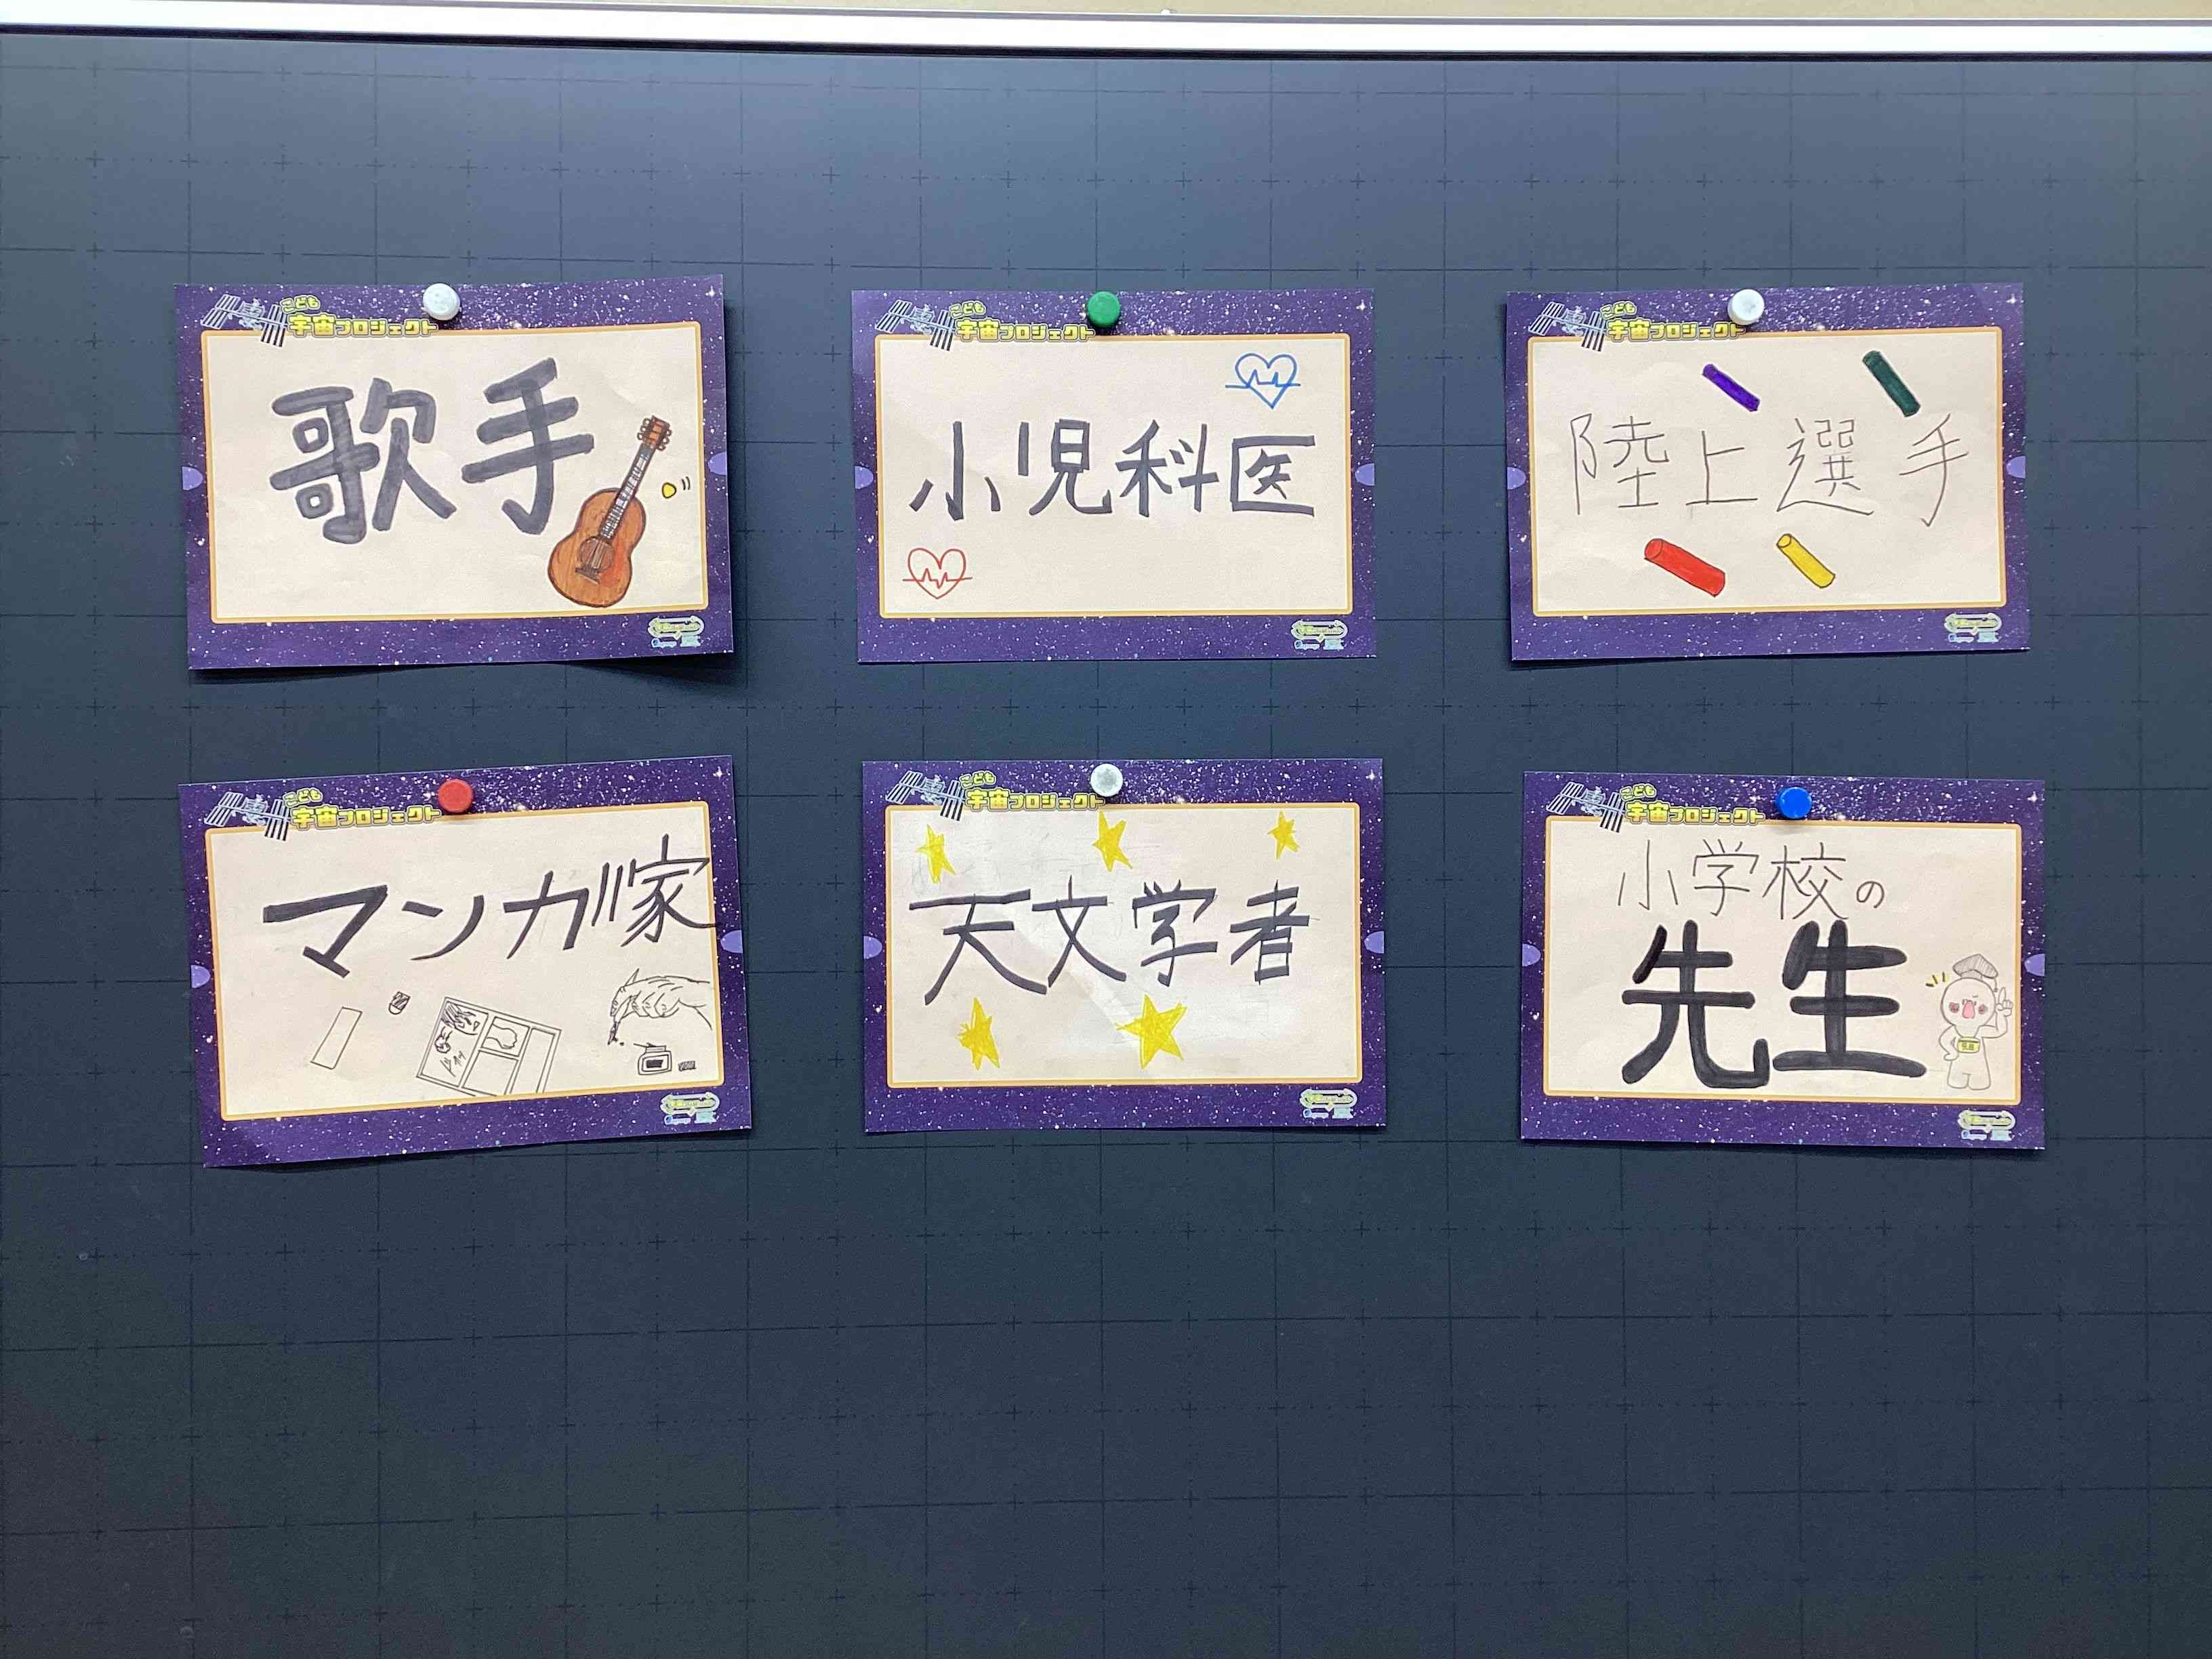 こども
宇宙プロジェクト
歌手
こども
宇宙プロジェクト
小児科医
こども
宇宙プロジェクト
陸上選手
こども
宇宙プロジェクト
マンガ家
こども
宇宙プロジェクト
天文学者
こども
宇宙プロジェクト
小学校の
先生